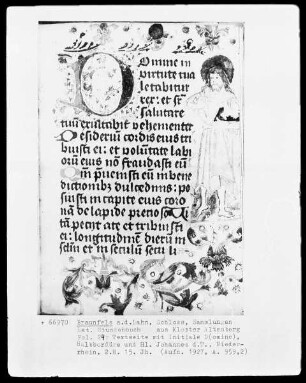 Domine in
virtute tua
letabitur
rex: et sup
salutare
tuū exultabit vehementer
Desideriū cordis eius tri
buisti ei: et volūtate labi
orum eius nō fraudasti eū
Qm̄ pueuisti eū in bene
dictionibz dulcedinis: po
suisti in capite eius coro
nā de lapide precioso
tā petyt a te et tribuisti
ei: longitudinem dierū in
sclm et in seculū seculi
+ 66970 Braunfels a.d.Lahn, Schloss, Sammlungen
Lat. Stundenbuch aus Kloster Altenberg
Fol. 94: Textseite mit Initiale D(omine),
Halsbordüre und Hl. Johannes d.T., Nieder-
rhein, 2.H. 15. Jh. (Aufn. 1927, a. 959,2)